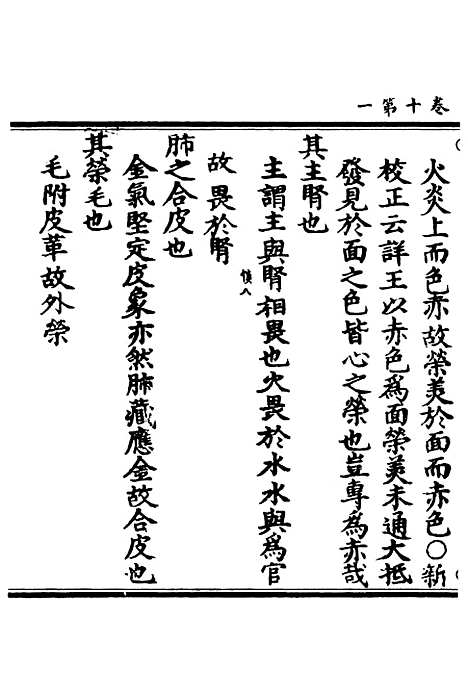 卷十第一
火炎上而色赤故榮美於面而赤色〇新
校正云詳王以赤色爲面榮美未通大抵
發見於面之色皆心之榮也豈專爲赤哉
其主腎也
主謂主與腎相畏也火畏於水水與爲官
故畏於腎
慎八
肺之合皮也
金氣堅定皮象亦然肺藏應金故合皮也
其榮毛也
毛附皮革故外榮